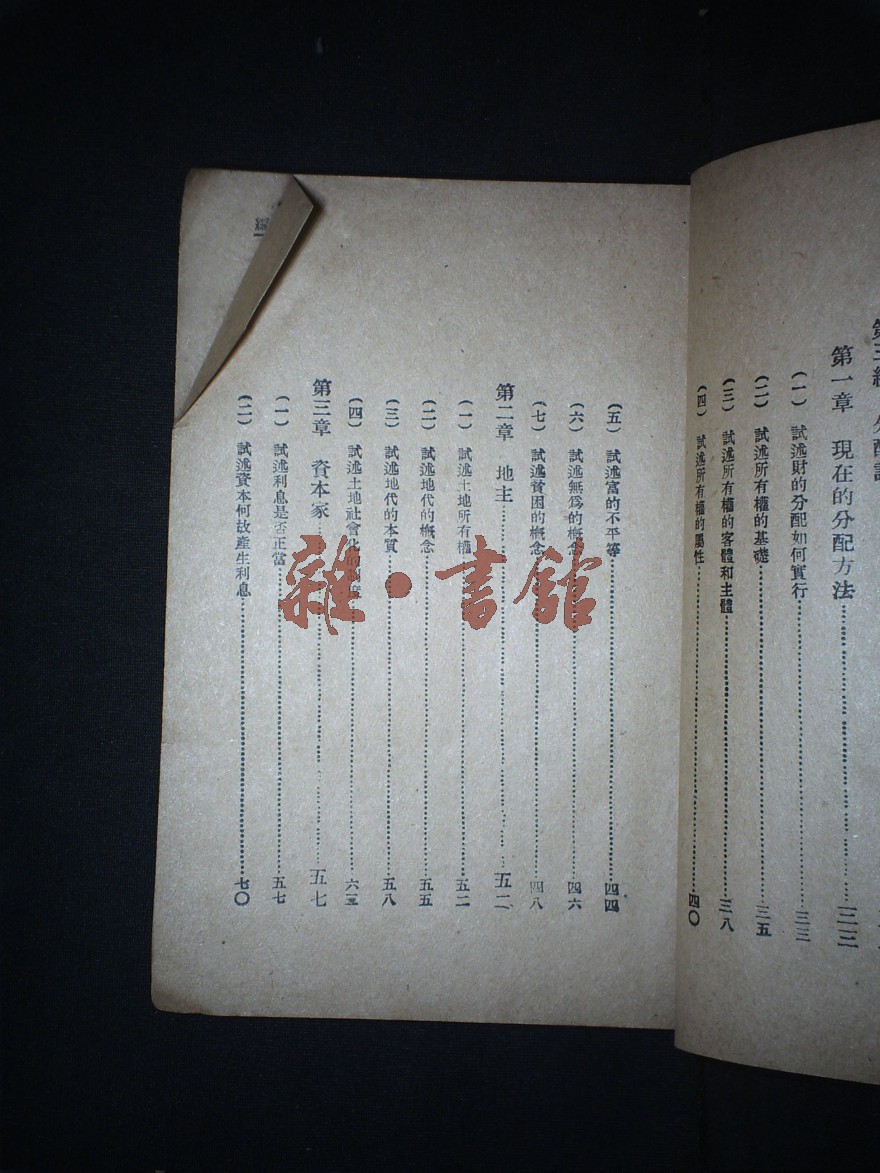 第一章　現在的分配方法……三三
(一)　試述財的分配如何實行……三三
(二)　試述所有權的基礎……三五
(三)　試述所有權的客體和主體……三八
(四)　試述所有權的屬性……四〇
(五)　試述富的不平等……四四
(六)　試述無爲的概念……四六
(七)　試述貧困的概念……四八
第二章　地主……五二
(一)　試述土地所有權……五二
(二)　試述地代的概念……五五
(三)　試述地代的本質……五八
(四)　試述土地社會化的……六三
第三章　資本家……五七
(一)　試述利息是否正當……五七
(二)　試述資本何故產生利息……七〇
雜·書館